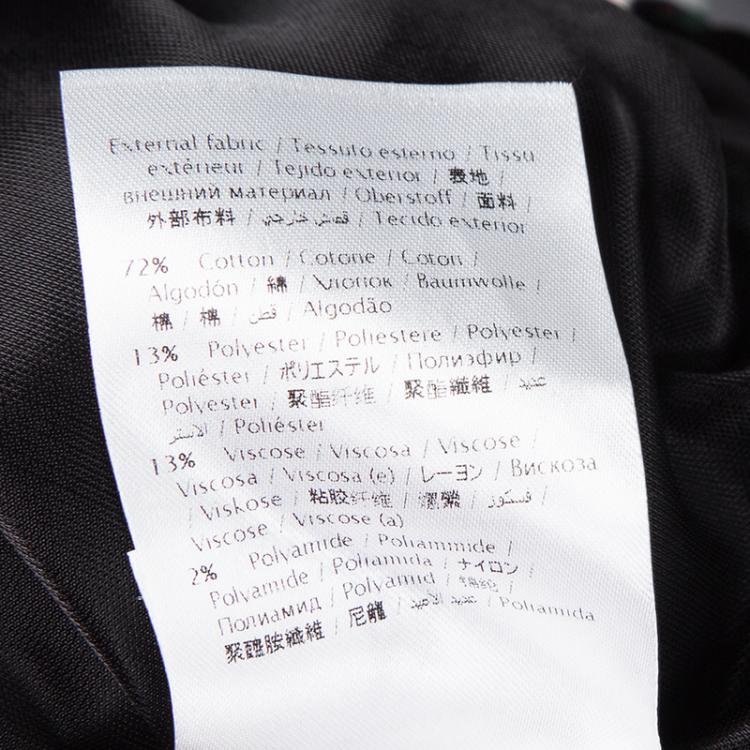 External fabric / Tessuto esterno / Tissu
extérieur / Tejido exterior / 表地 /
внешний материал / Oberstoff / 面料 /
外部布料 / قماش خارجي / Tecido exterior
72% Cotton / Cotone / Coton /
Algodón / 綿 / Хлопок / Baumwolle /
棉 / 棉 / قطن / Algodão
13% Polyester / Poliestere / Polyester /
Poliéster / ポリエステル / Полиэфир /
Polyester / 聚酯纤维 / 聚酯纖維 / عديد
الاستر / Poliéster
13% Viscose / Viscosa / Viscose /
Viscosa / Viscosa (e) / レーヨン / Вискоза
/ Viskose / 粘胶纤维 / / فسكوز /
Viscose / Viscose (a)
2% Polyamide / Poliammide /
Polyamide / Poliamida / ナイロン /
Полиамид / Polyamid / 锦纶 /
聚醯胺纖維 / 尼龍 / عديد الاميد / Poliamida